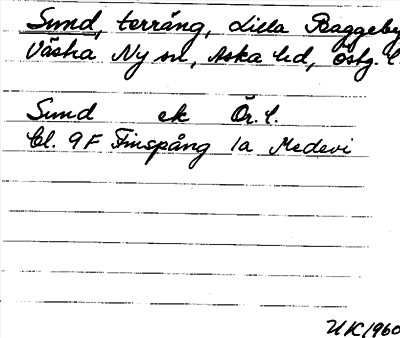 Sund, terräng, Lilla Baggeby
Västra Ny sn, Aska hd, Östg. l.
Sund ek Ör. l.
Bl. 9F Finspång 1a Medevi
UK 1960